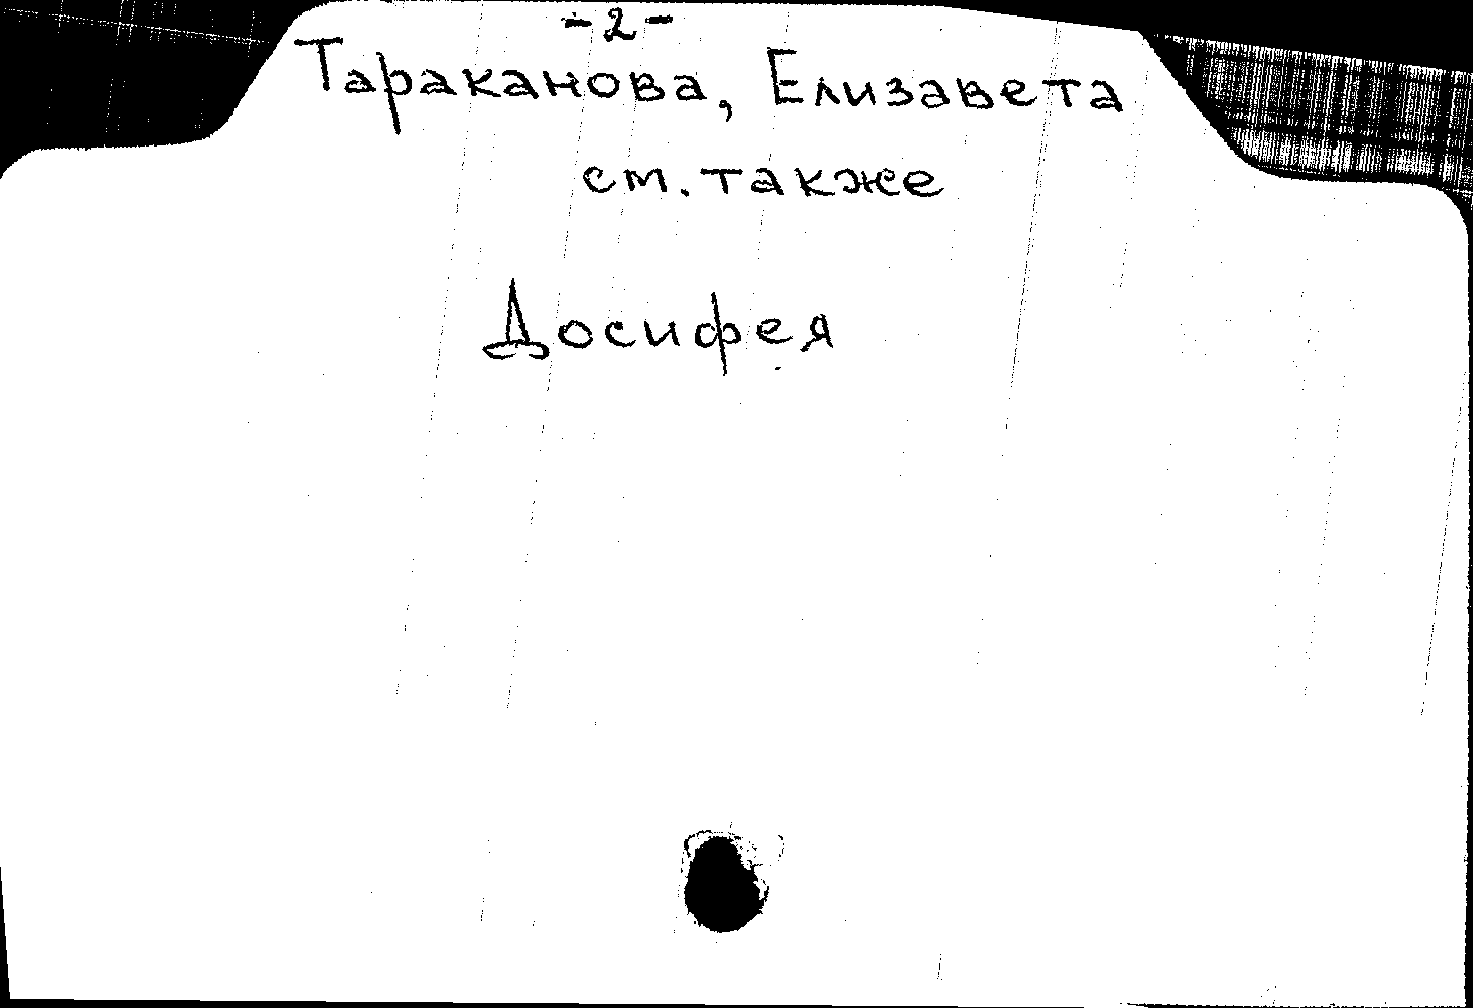 -2-
Тараканова, Елизавета
см. также
Досифея